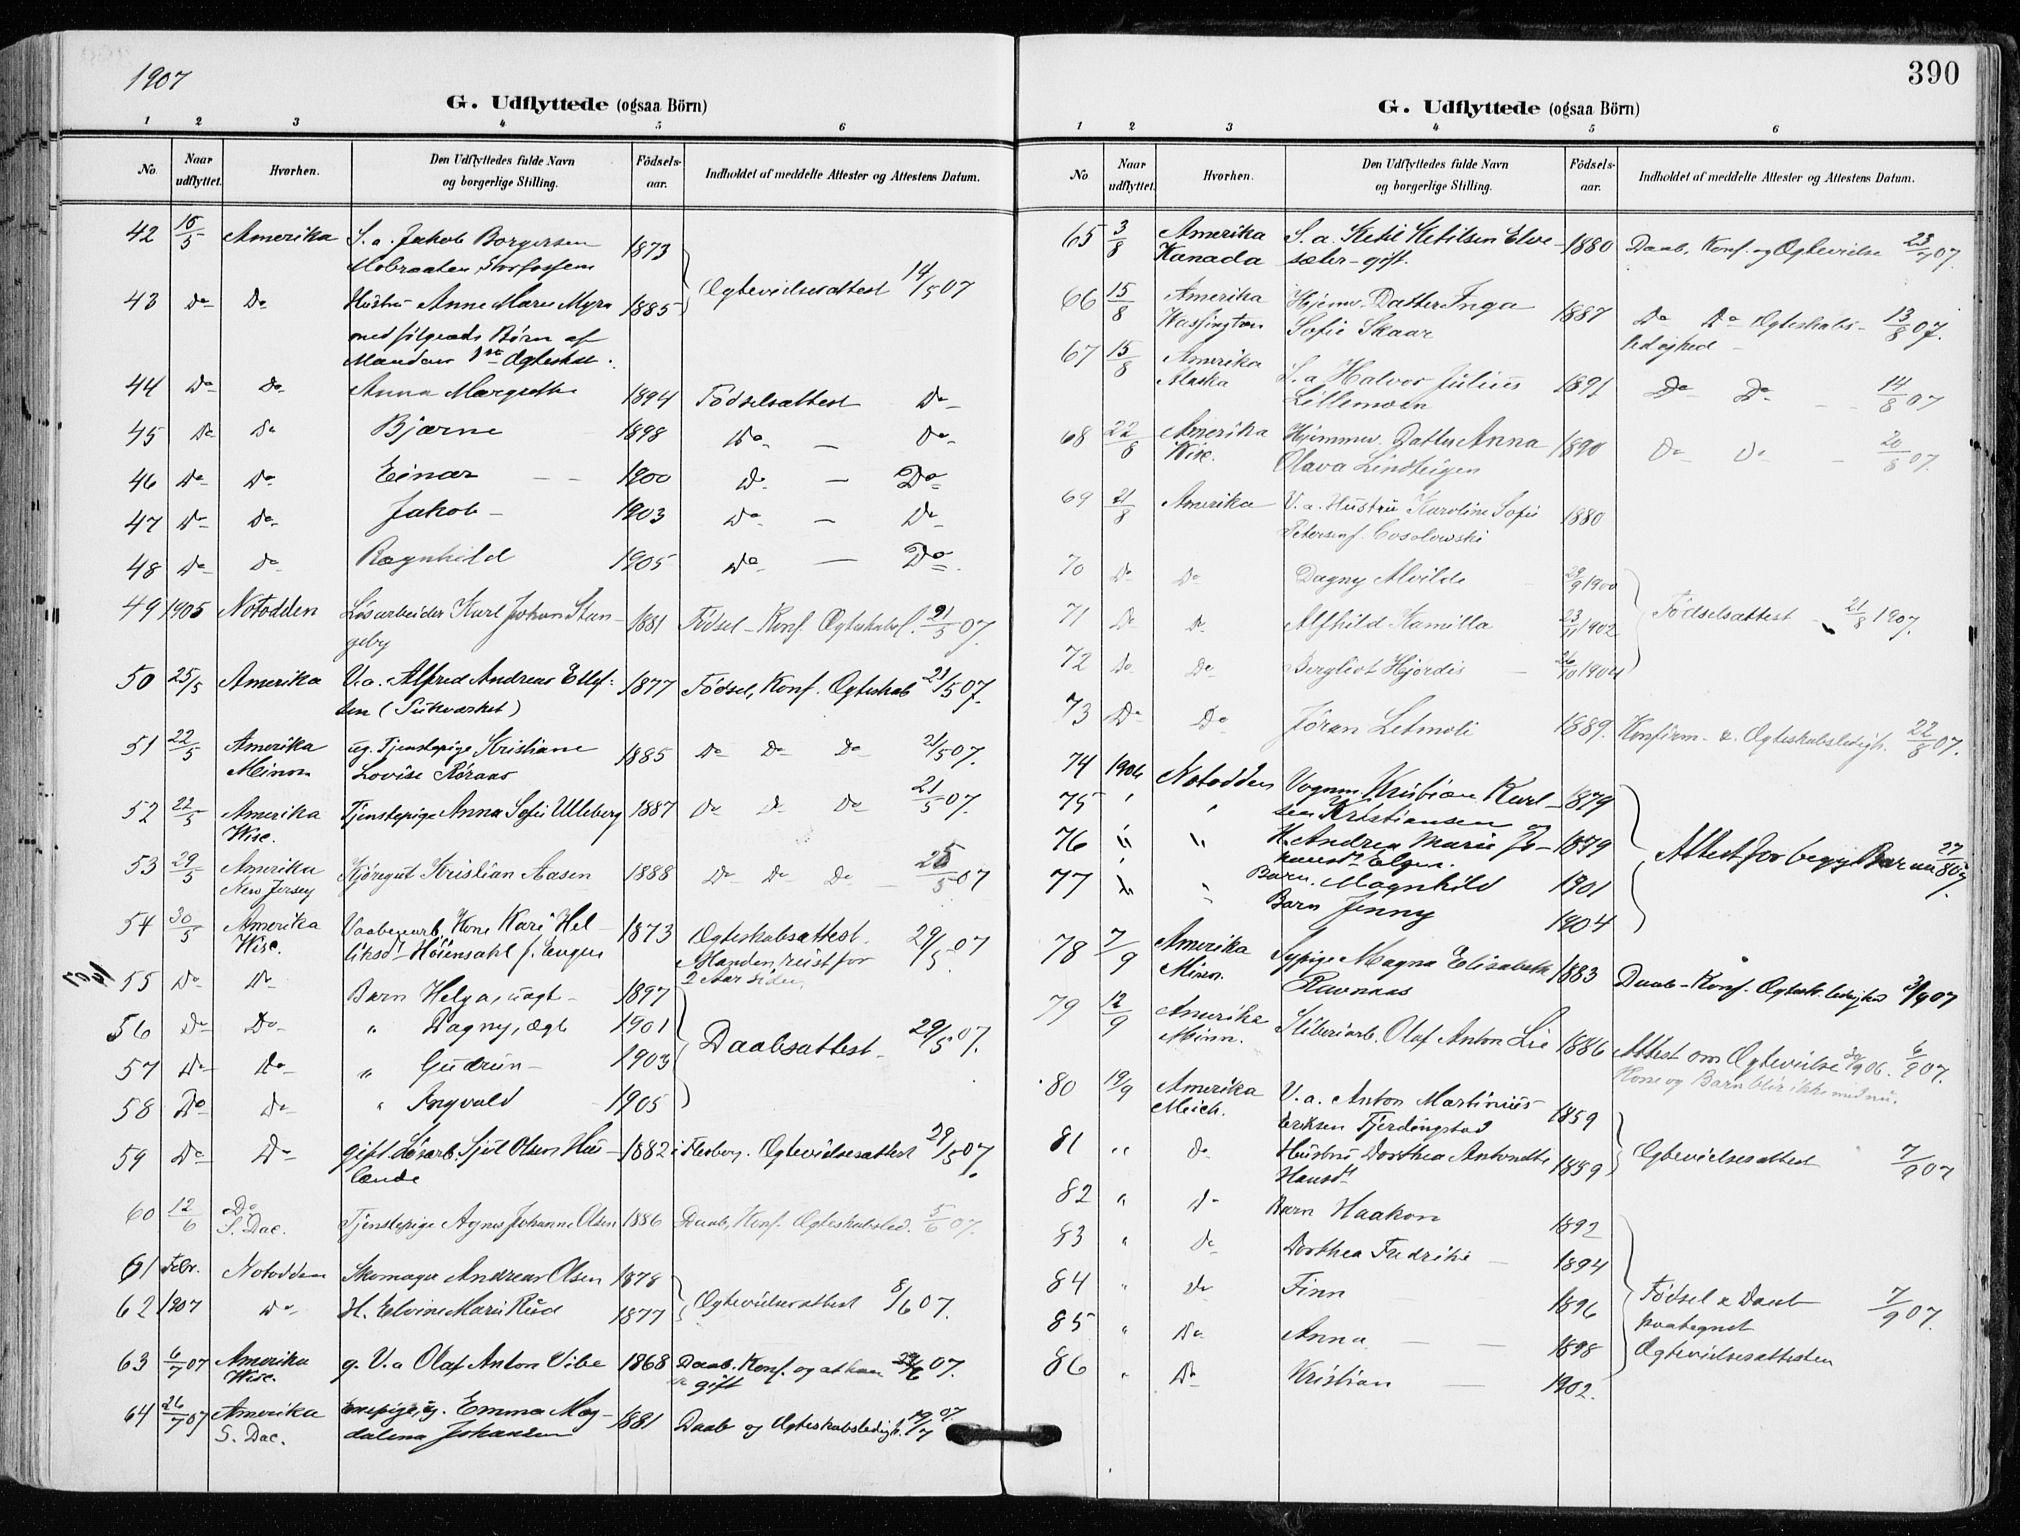 1907
G. Udflyttede (ogsaa Börn)
1 2 3 4 5 6
No. Naar udflyttet. Hvorhen. Den Udflyttedes fulde Navn og borgerlige Stilling. Födselsaar. Indholdet af meddelte Attester og Attestens Datum.
42 16/5 Amerika S. a. Jakob Borgersen 1873
Mobraaten, Storfossen
Ogtevielsesattest 14/5 07
43 Do Do Hustru Anne Marie Myra 1885
medfølgende Børn af
Mandens 1ste Ogteskab.
44 Do Do Anna Margrethe 1894 Födselsattest Do
45 Do Do Bjarne 1898 Do — Do
46 Do Do Einar 1900 Do — Do
47 Do Do Jakob 1903 Do — Do
48 Do Do Ragnhild 1905 Do — Do
49 1905 Notodden Løsarbeider Karl Johan Stan- 1881 Födsel - Konf. Ogteskabsl. 21/5 07.
geby
50 25/5 Amerika V. a. Alfred Andreas Ellef- 1877 Födsel, Konf. Ogteskab 21/5 07.
sen
51 22/5 Amerika ug. Tjenstepige Kristiane 1885 Do Do Do 21/5 07.
Minn. Lovise Røraas
52 22/5 Amerika Tjenstepige Anna Sofie Ulleberg 1887 Do Do Do 21/5 07.
Wisc.
53 29/5 Amerika Kjöregut Kristian Aasen 1888 Do Do Do 25/5 07
New Jersey
54 30/5 Amerika Vaabenarb. Kone Kari Hel- 1873 Ogteskabsattest. 29/5 07
Wisc. liksdr Høiensahl f. Enger Manden reist for
2 Aar siden.
55 Do Do Barn Helga, uægt 1897
56 Do Do " Dagny, ægt 1901 Daabsattest 29/5 07.
57 Do Do " Gudrun 1903
58 Do Do " Ingvald 1905
59 Do Do gift Løsarb. Sjul Olsen Hu- 1882 i Flesberg. Ogtevielsesattest 29/5 07.
60 12/6 Do Tjenstepige Agnes Johanne Olsen 1886 Daab, Konf. Ogteskabsled. 5/6 07.
S. Dac.
61 Febr. Notodden Skomager Andreas Olsen 1878
Ogtevielsesattest 8/6 07.
62 1907 Do H. Elvine Marie Rud 1877
63 6/7 07 Amerika g. V. a Olaf Anton Vibe 1868 Daab. Konf. og at han 07.
Wisc. er gift
64 26/7 07 Amerika Enepige, ug. Emma Mag- 1881 Daab og Ogteskabsledigh. 19/7 07
S. Dac. dalena Johansen
390
G. Udflyttede (ogsaa Börn)
1 2 3 4 5 6
No Naar udflyttet. Hvorhen. Den Udflyttedes fulde Navn og borgerlige Stilling. Födselsaar. Indholdet af meddelte Attester og Attestens Datum.
65 3/8 Amerika S. a. Ketil Ketilsen Elve- 1880 Daab, Konf. og Ogtevielse 23/7 07.
Kanada sæter - gift.
66 15/8 Amerika Hjemv. Datter Inga 1887 Do Do Ogteskabs- 13/8 07.
Wasington Sofie Skaar ledighed -
67 15/8 Amerika S. a Halvor Julius 1891 Do Do 14/8 07
Alaska Lillemoen
68 22/8 Amerika Hjemmev. Datter Anna 1890 Do Do 20/8 07.
Wisc. Olava Lindteigen
69 21/8 Amerika V. a. Hustru Karoline Sofie 1880
Petersen f. Cosolowski
70 Do Do Dagny Alvilde 29/9 1900
71 Do Do Alfhild Kamilla 23/11 1902 Födselsattest 21/8 1907.
72 Do Do Bergliot Hjørdis 26/10 1904
73 Do Do Jöran Letmoli 1889. Konfirm. & Ogteskabsledigh. 22/8 07.
74 1906 Notodden Vognm. Kristian Karl- 1879
75 " " sen Kristiansen og
76 " " H. Andrea Marie Jo- 1879 Attest for begge Barna 27/8 07.
hansdr Elgen.
77 " " Barn. Magnhild 1901
Barn Jenny 1904
78 7/9 Amerika Sypige Magna Elisabeth 1883 Daab - Konf. Ogtesk.ledighed 3/9 07
Minn. Ravnaas
79 12/9 Amerika Sliberiarb. Olaf Anton Lie 1886 Attest om Ogtevielse 06. 6/9 07.
Minn. Kone og Barn blir ikke med nu.
80 19/9 Amerika V. a. Anton Martinius 1859
Mich. Eriksen Fjerdingstad
81 " Do Hustru Dorthea Antonette 1859 Ogtevielsesattest 7/9 07
Hansdr
82 " Do Barn Haakon 1892
83 " Do Dorthea Fredrike 1894
84 " Do Finn 1896 Födsel & Daab 7/9 07.
85 " Do Anna 1898 paategnet
Ogtevielsesattesten
86 " Do Kristian 1902.